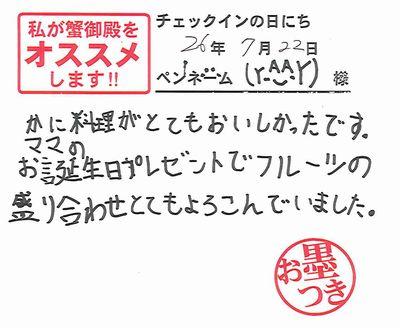 私が蟹御殿を
オススメ
します!!
チェックインの日にち
26年7月22日
ペンネーム (r-AA-Y) 様
かに料理がとてもおいしかったです。
ママの
お誕生日プレゼントでフルーツの
盛り合わせとてもよろこんでいました。
お墨つき